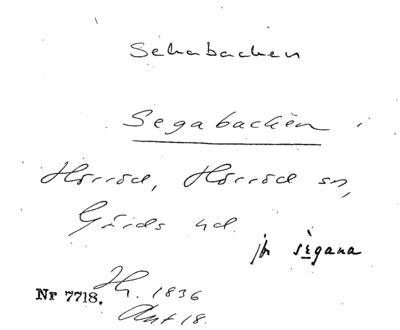 Sehabacken
Segabackèn
Hörröd, Hörröd sn,
Gärds hd.
jfr sègana
Nr 7718. Hg. 1836
Akt 18.